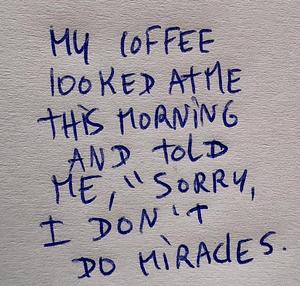 MY COFFEE
LOOKED AT ME
THIS MORNING
AND TOLD
ME, "SORRY,
I DON'T
DO MIRACLES.